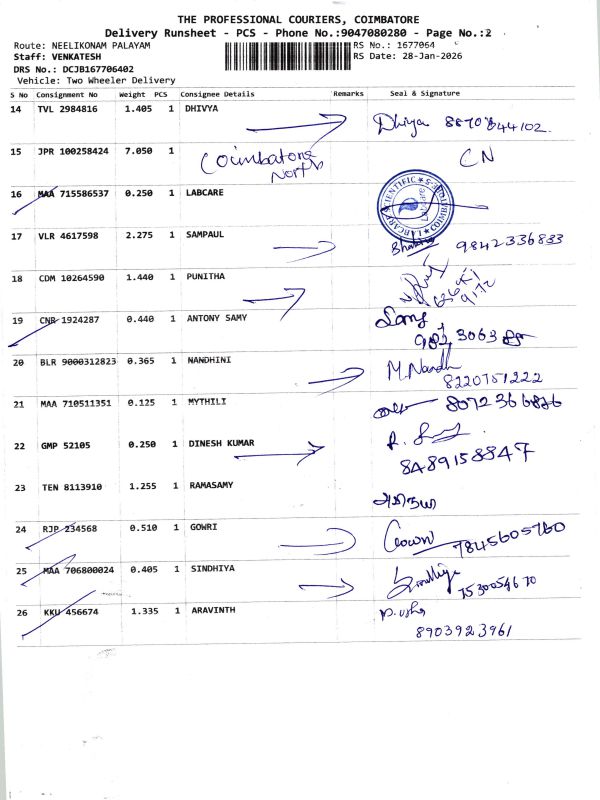 THE PROFESSIONAL COURIERS, COIMBATORE
Delivery Runsheet - PCS - Phone No.:9047080280 - Page No.:2
Route: NEELIKONAM PALAYAM RS No.: 1677064
Staff: VENKATESH RS Date: 28-Jan-2026
DRS No.: DCJB167706402
Vehicle: Two Wheeler Delivery
S No Consignment No Weight PCS Consignee Details Remarks Seal & Signature
14 TVL 2984816 1.405 1 DHIVYA Dhivya
15 JPR 100258424 7.050 1 Coimbatore North CN
16 MAA 715586537 0.250 1 LABCARE
17 VLR 4617598 2.275 1 SAMPAUL 9842336833
18 CDM 10264590 1.440 1 PUNITHA
19 CNR 1924287 0.440 1 ANTONY SAMY
20 BLR 9000312823 0.365 1 NANDHINI M.Nandh 8220751222
21 MAA 710511351 0.125 1 MYTHILI
22 GMP 52105 0.250 1 DINESH KUMAR 8489158847
23 TEN 8113910 1.255 1 RAMASAMY
24 RJP 234568 0.510 1 GOWRI Gowri 7845605760
25 MAA 706800024 0.405 1 SINDHIYA Sindhiya 7530054670
26 KKU 456674 1.335 1 ARAVINTH P. Usha
8903923961